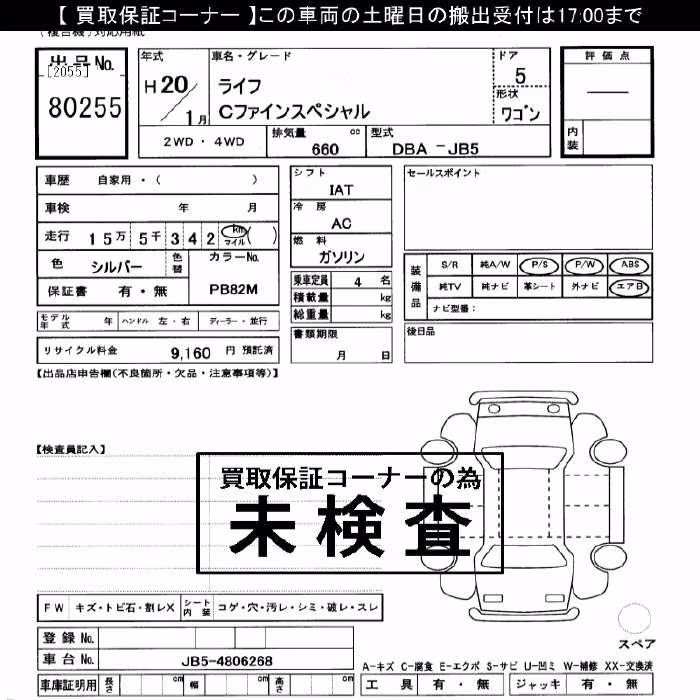 【 買取保証コーナー 】この車両の土曜日の搬出受付は17:00まで
(複合機)対応用紙
出品No.
[2055]
80255
年式
H 20 / 1 月
車名・グレード
ライフ
Cファインスペシャル
ドア
5
形状
ワゴン
評価点
内装
2WD ・ 4WD
排気量
660 cc
型式
DBA -JB5
車歴 自家用・( )
車検 年 月
走行 15万 5千 3 4 2 km マイル ( )
色 シルバー
色替
カラーNo.
PB82M
保証書 有・無
モデル年式 年 ハンドル 左・右 ディーラー・並行
リサイクル料金 9,160 円 預託済
シフト
IAT
冷房
AC
燃料
ガソリン
乗車定員 4 名
積載量 kg
総重量 kg
書類期限
月 日
セールスポイント
装備品
S/R 純A/W P/S P/W ABS
純TV 純ナビ 革シート 外ナビ エアB
ナビ型番:
後日品
【出品店申告欄(不良箇所・欠品・注意事項等)】
【検査員記入】
買取保証コーナーの為
未検査
FW キズ・トビ石・割レX
シート内装 コゲ・穴・汚レ・シミ・破レ・スレ
登録No.
車台No. JB5-4806268
車庫証明用 長さ cm 幅 cm 高さ cm
スペア
A-キズ C-腐食 E-エクボ S-サビ U-凹ミ W-補修 XX-交換済
工具 有・無 ジャッキ 有・無